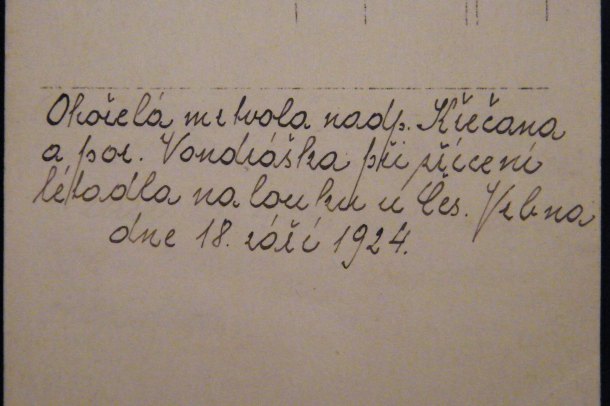 Ohořelá mrtvola nadp. Křečana
a por. Vondráška při zřícení
létadla na louku u Čes. Vrbna
dne 18. září 1924.